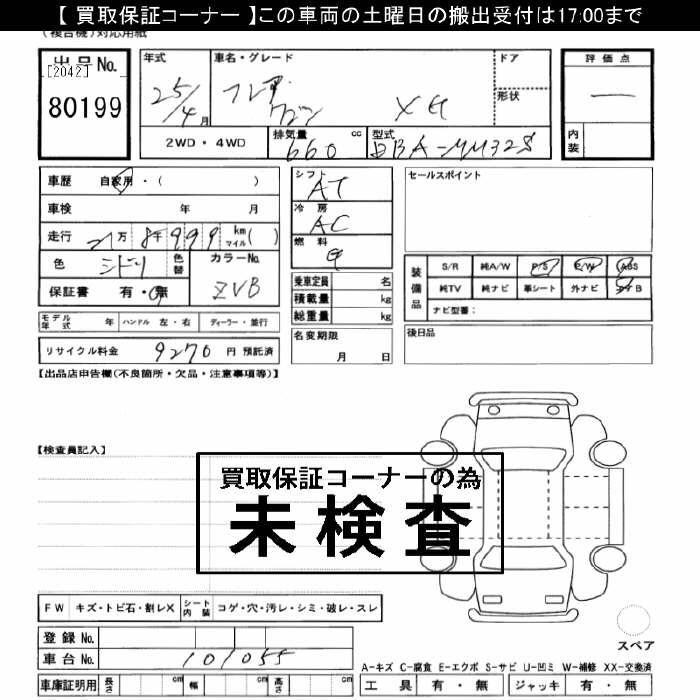 【 買取保証コーナー 】この車両の土曜日の搬出受付は17:00まで
(複合機)対応用紙
出品No. [2042] 80199
年式 25/4月
車名・グレード フレア ワゴン XG
ドア
形状
評価点 —
内装
2WD・4WD
排気量 660 cc
型式 DBA-MM32S
車歴 自家用・( )
車検 年 月
走行 21万 8千 999 km マイル( )
色 ミドリ 色替
カラーNo. ZVB
保証書 有・無
シフト AT
冷房 AC
燃料 G
乗車定員 名
積載量 kg
総重量 kg
セールスポイント
装備品 S/R 純A/W P/S P/W ABS
純TV 純ナビ 革シート 外ナビ エアB
ナビ型番:
モデル年式 年 ハンドル 左・右 ディーラー・並行
名変期限 月 日
後日品
リサイクル料金 9270 円 預託済
【出品店申告欄(不良箇所・欠品・注意事項等)】
【検査員記入】
買取保証コーナーの為
未検査
FW キズ・トビ石・割レX シート内装 コゲ・穴・汚レ・シミ・破レ・スレ
登録No.
車台No. 101055
スペア
A-キズ C-腐食 E-エクボ S-サビ U-凹ミ W-補修 XX-交換済
車庫証明用 長さ cm 幅 cm 高さ cm
工具 有・無 ジャッキ 有・無